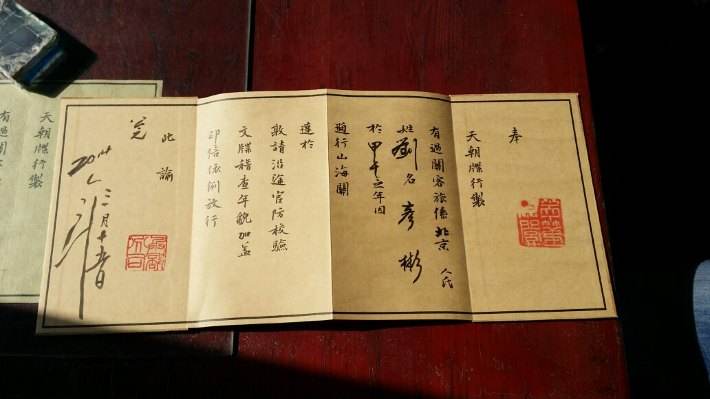 奉
天朝牒行製
有過關客旅係北京 人氏
姓劉名彥彬
於甲午之年因
行山海關
於
敬請沿途官防校驗
文牒稽查年貌加蓋
印信依例放行
此諭
2014
三月十日
天朝牒行製
有過關客